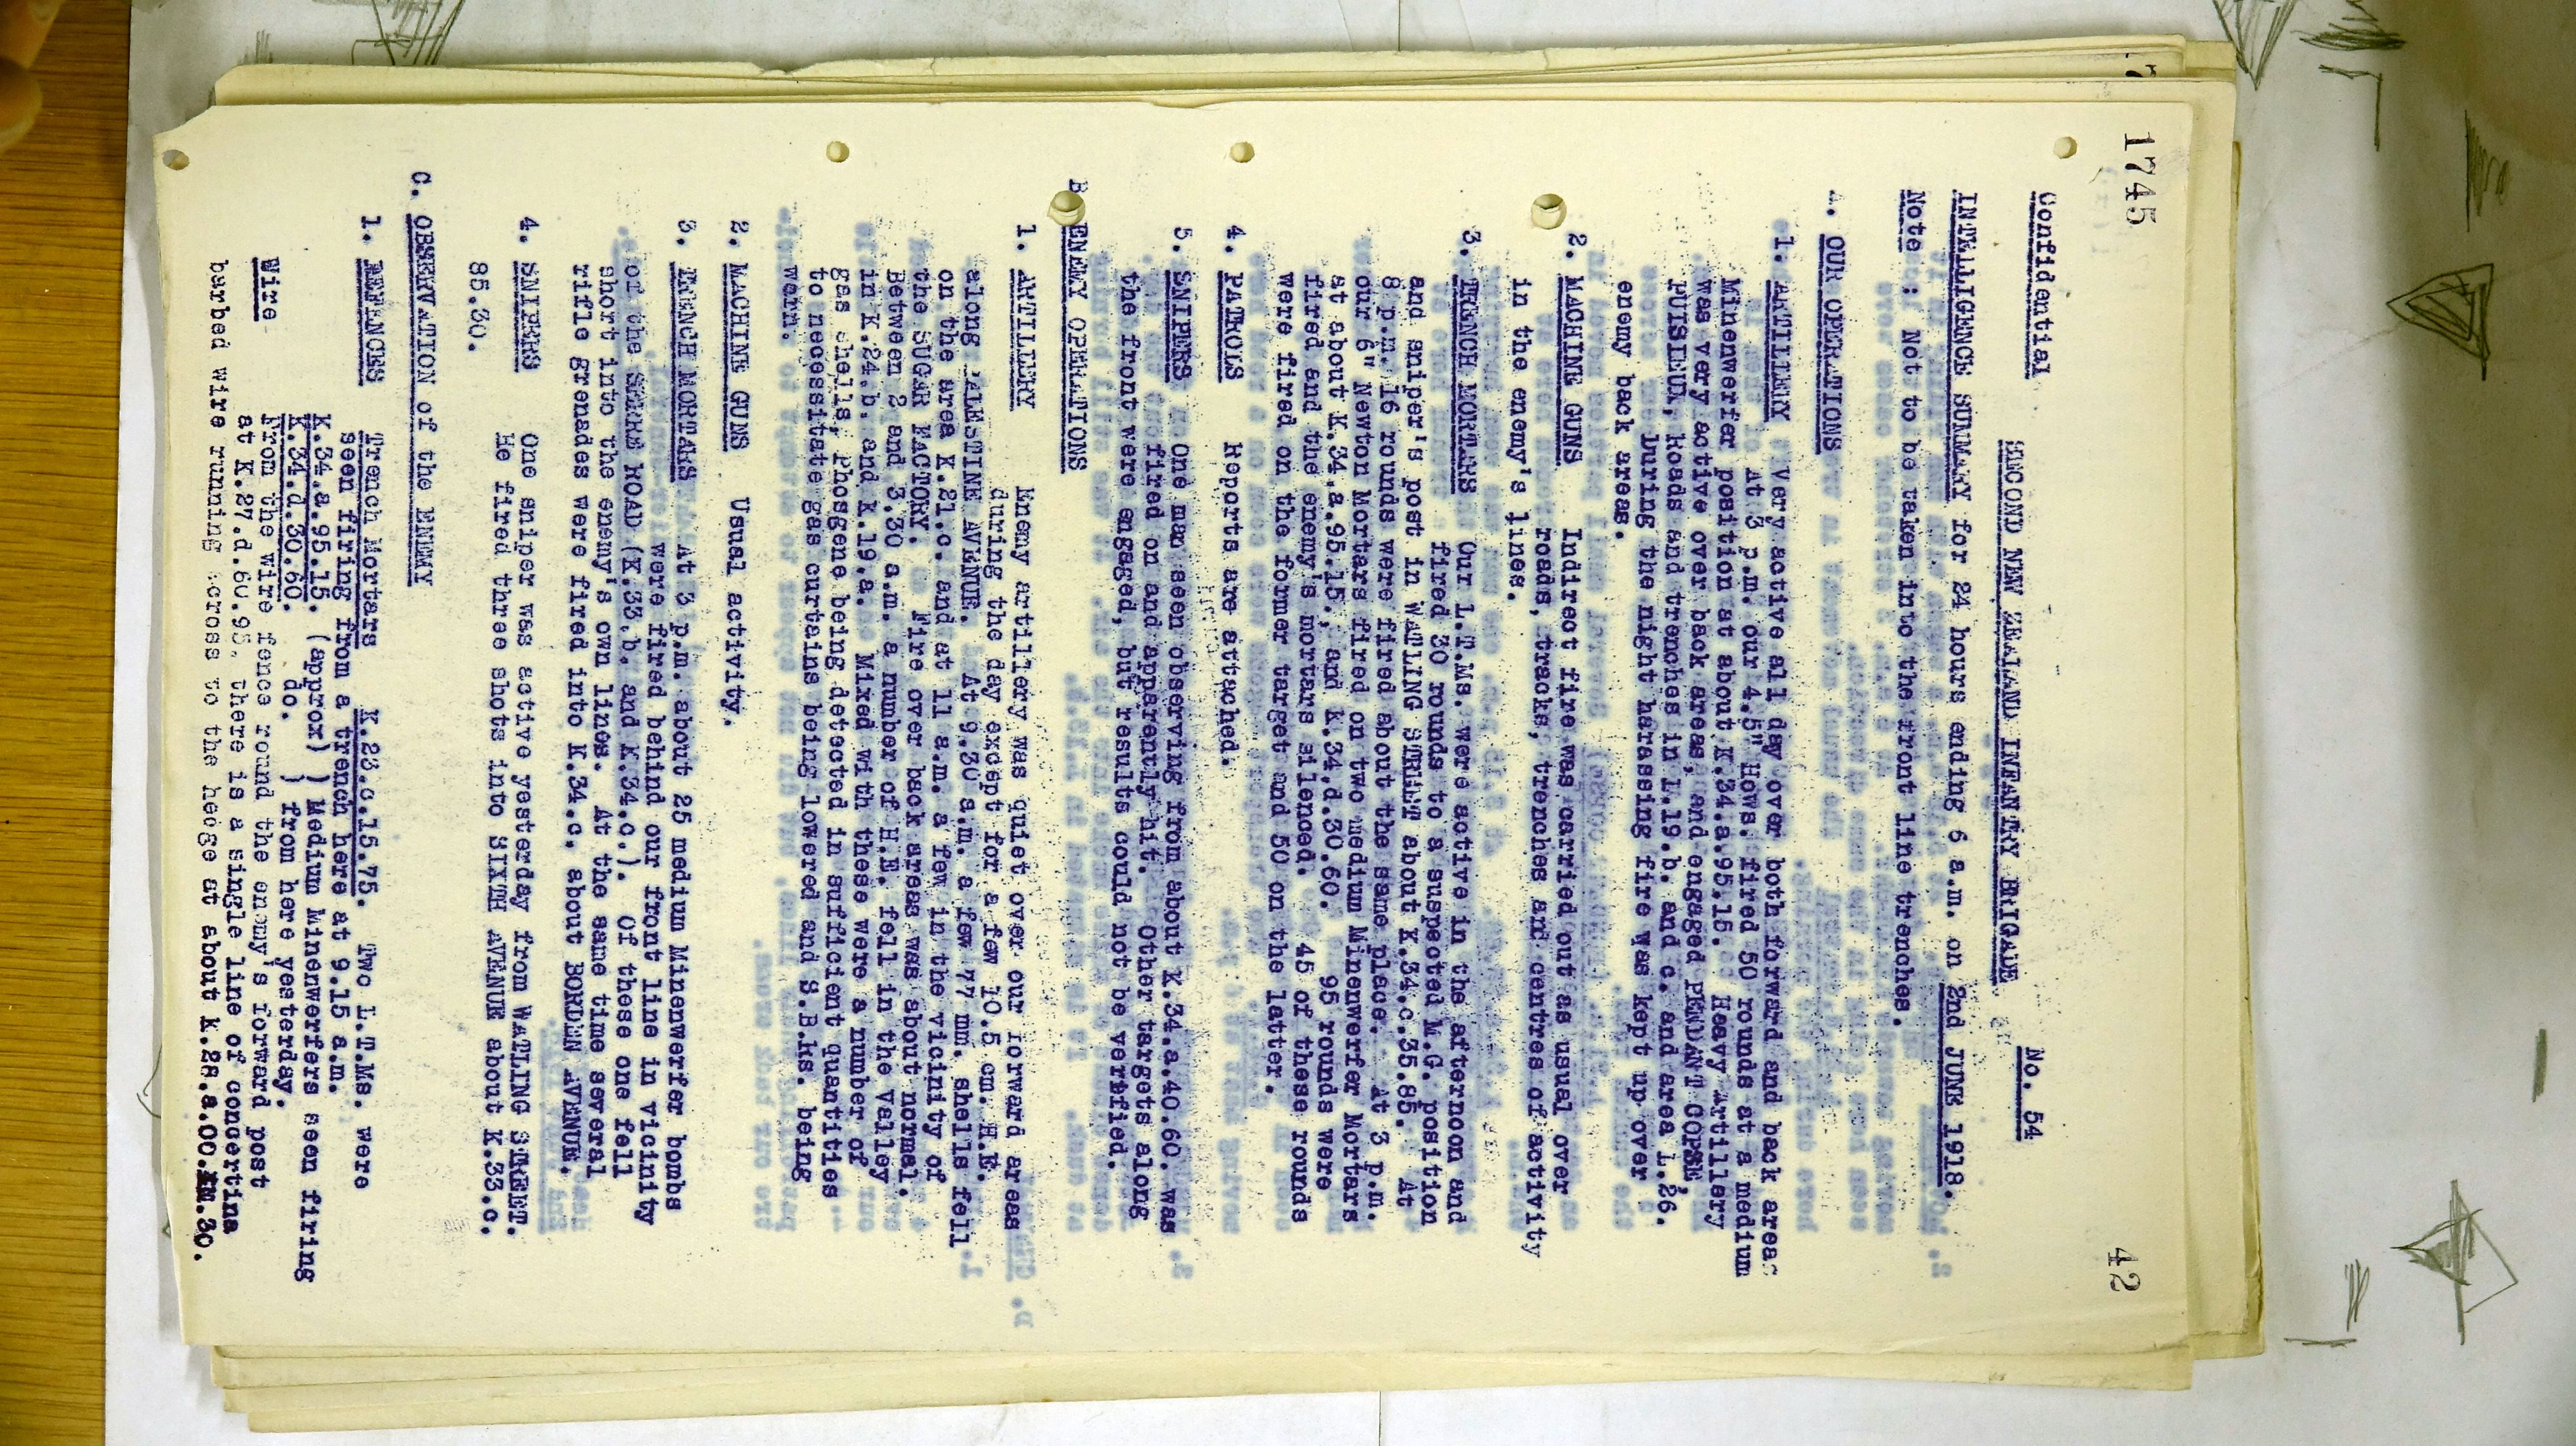 1745
42
Confidential
No. 54
SECOND NEW ZEALAND INFANTRY BRIGADE
INTELLIGENCE SUMMARY for 24 hours ending 6 a.m. on 2nd JUNE 1918.
Note : Not to be taken into the front line trenches.
A. OUR OPERATIONS
1. ARTILLERY Very active all day over both forward and back areas
At 3 p.m. our 4.5" Hows. fired 50 rounds at a medium
Minenwerfer position at about K.34.a.95.15. Heavy Artillery
was very active over back areas, and engaged PENDANT COPSE,
PUISIEUX, Roads and trenches in L.19.b. and c. and area L.26.
During the night harassing fire was kept up over
enemy back areas.
2. MACHINE GUNS Indirect fire was carried out as usual over
roads, tracks, trenches and centres of activity
in the enemy's lines.
3. TRENCH MORTARS Our L.T.Ms. were active in the afternoon and
fired 30 rounds to a suspected M.G. position
and sniper's post in WATLING STREET about K.34.c.35.85. At
8 p.m. 16 rounds were fired about the same place. At 3 p.m.
our 6" Newton Mortars fired on two medium Minenwerfer Mortars
at about K.34.a.95.15, and K.34.d.30.60. 95 rounds were
fired and the enemy's mortars silenced. 45 of these rounds
were fired on the former target and 50 on the latter.
4. PATROLS Reports are attached.
5. SNIPERS One man seen observing from about K.34.a.40.60. was
fired on and apparently hit. Other targets along
the front were engaged, but results could not be verified.
B ENEMY OPERATIONS
1. ARTILLERY Enemy artillery was quiet over our forward areas
during the day except for a few 10.5 cm. H.E.
along PALESTINE AVENUE. At 9.30 a.m. a few 77 mm. shells fell
on the area K.21.c. and at 11 a.m. a few in the vicinity of
the SUGAR FACTORY. Fire over back areas was about normal.
Between 2 and 3.30 a.m. a number of H.E. fell in the valley
in K.24.b. and K.19.a. Mixed with these were a number of
gas shells, Phosgene being detected in sufficient quantities
to necessitate gas curtains being lowered and S.B.Rs. being
worn.
2. MACHINE GUNS Usual activity.
3. TRENCH MORTARS At 3 p.m. about 25 medium Minenwerfer bombs
were fired behind our front line in vicinity
of the SERRE ROAD (K.33.b. and K.34.c.). Of these one fell
short into the enemy's own lines. At the same time several
rifle grenades were fired into K.34.c. about BORDEN AVENUE.
4. SNIPERS One sniper was active yesterday from WATLING STREET.
He fired three shots into SIXTH AVENUE about K.33.c.
85.30.
C. OBSERVATION of the ENEMY
1. DEFENCES Trench Mortars K.23.c.15.75. Two L.T.Ms. were
seen firing from a trench here at 9.15 a.m.
K.34.a.95.15. (approx) ) Medium Minenwerfers seen firing
K.34.d.30.60. do. ) from here yesterday.
Wire From the wire fence round the enemy's forward post
at K.27.d.60.95. there is a single line of concertina
barbed wire running across to the hedge at about K.28.a.00.30.